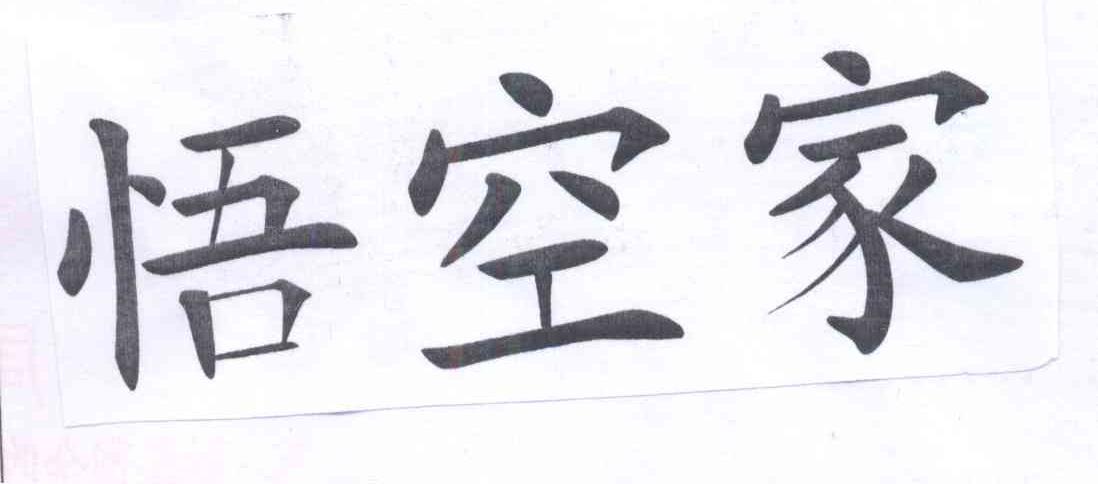 悟空家